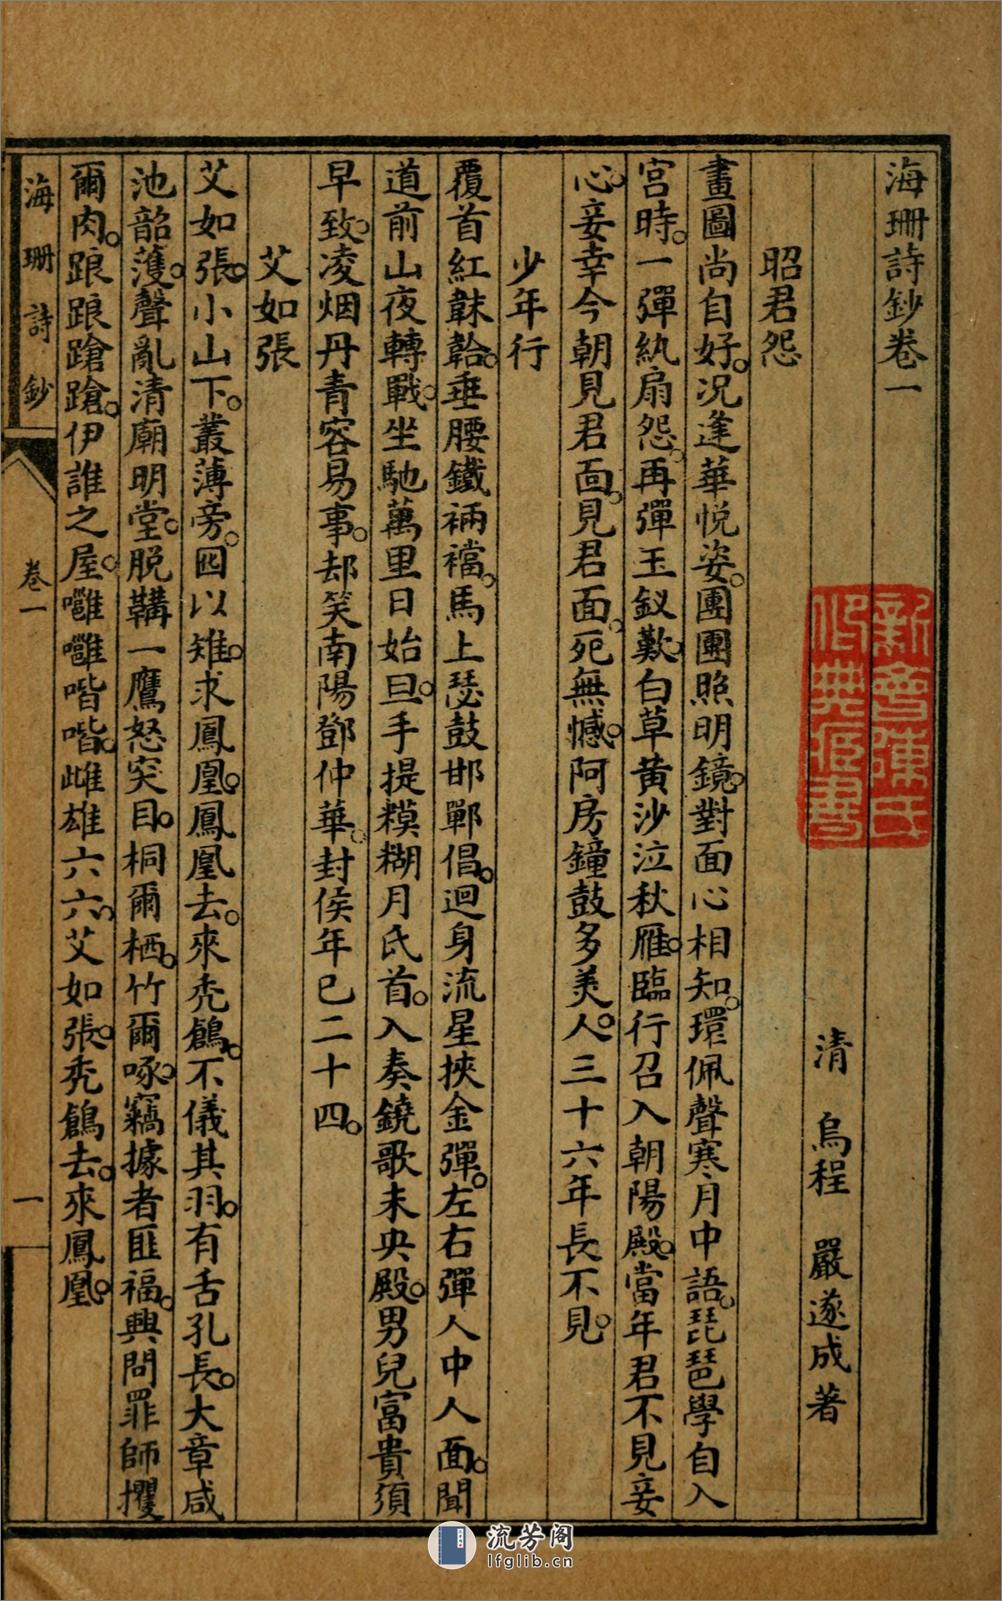 海珊詩鈔卷一
清　烏程　嚴遂成著
昭君怨
畫圖尚自好。况逢華悦姿。團團照明鏡。對面心相知。環佩聲寒月中語。琵琶學自入
宮時。一彈紈扇怨。再彈玉釵歎。白草黄沙泣秋雁。臨行召入朝陽殿。當年君不見妾
心。妾幸今朝見君面。見君面。死無憾。阿房鐘鼓多美人。三十六年長不見。
少年行
覆首紅韎韐。垂腰鐵裲襠。馬上瑟鼓邯鄲倡。迴身流星挾金彈。左右彈人中人面。聞
道前山夜轉戰。坐馳萬里日始旦。手提糢糊月氏首。入奏鐃歌未央殿。男兒富貴須
早致。凌烟丹青容易事。却笑南陽鄧仲華。封侯年已二十四。
艾如張
艾如張。小山下。叢薄旁。囮以雉。求鳳凰。鳳凰去。來秃鶬。不儀其羽。有舌孔長。大章咸
池韶濩。聲亂清廟明堂。脱鞲一鷹怒突目。桐爾栖。竹爾啄。竊據者匪福。興問罪師攫
爾肉。踉踉蹌蹌。伊誰之屋。雝雝喈喈。雌雄六六。艾如張。秃鶬去。來鳳凰。
海珊詩鈔
卷一
一
新會陳氏
流芳阁
lfglib.cn